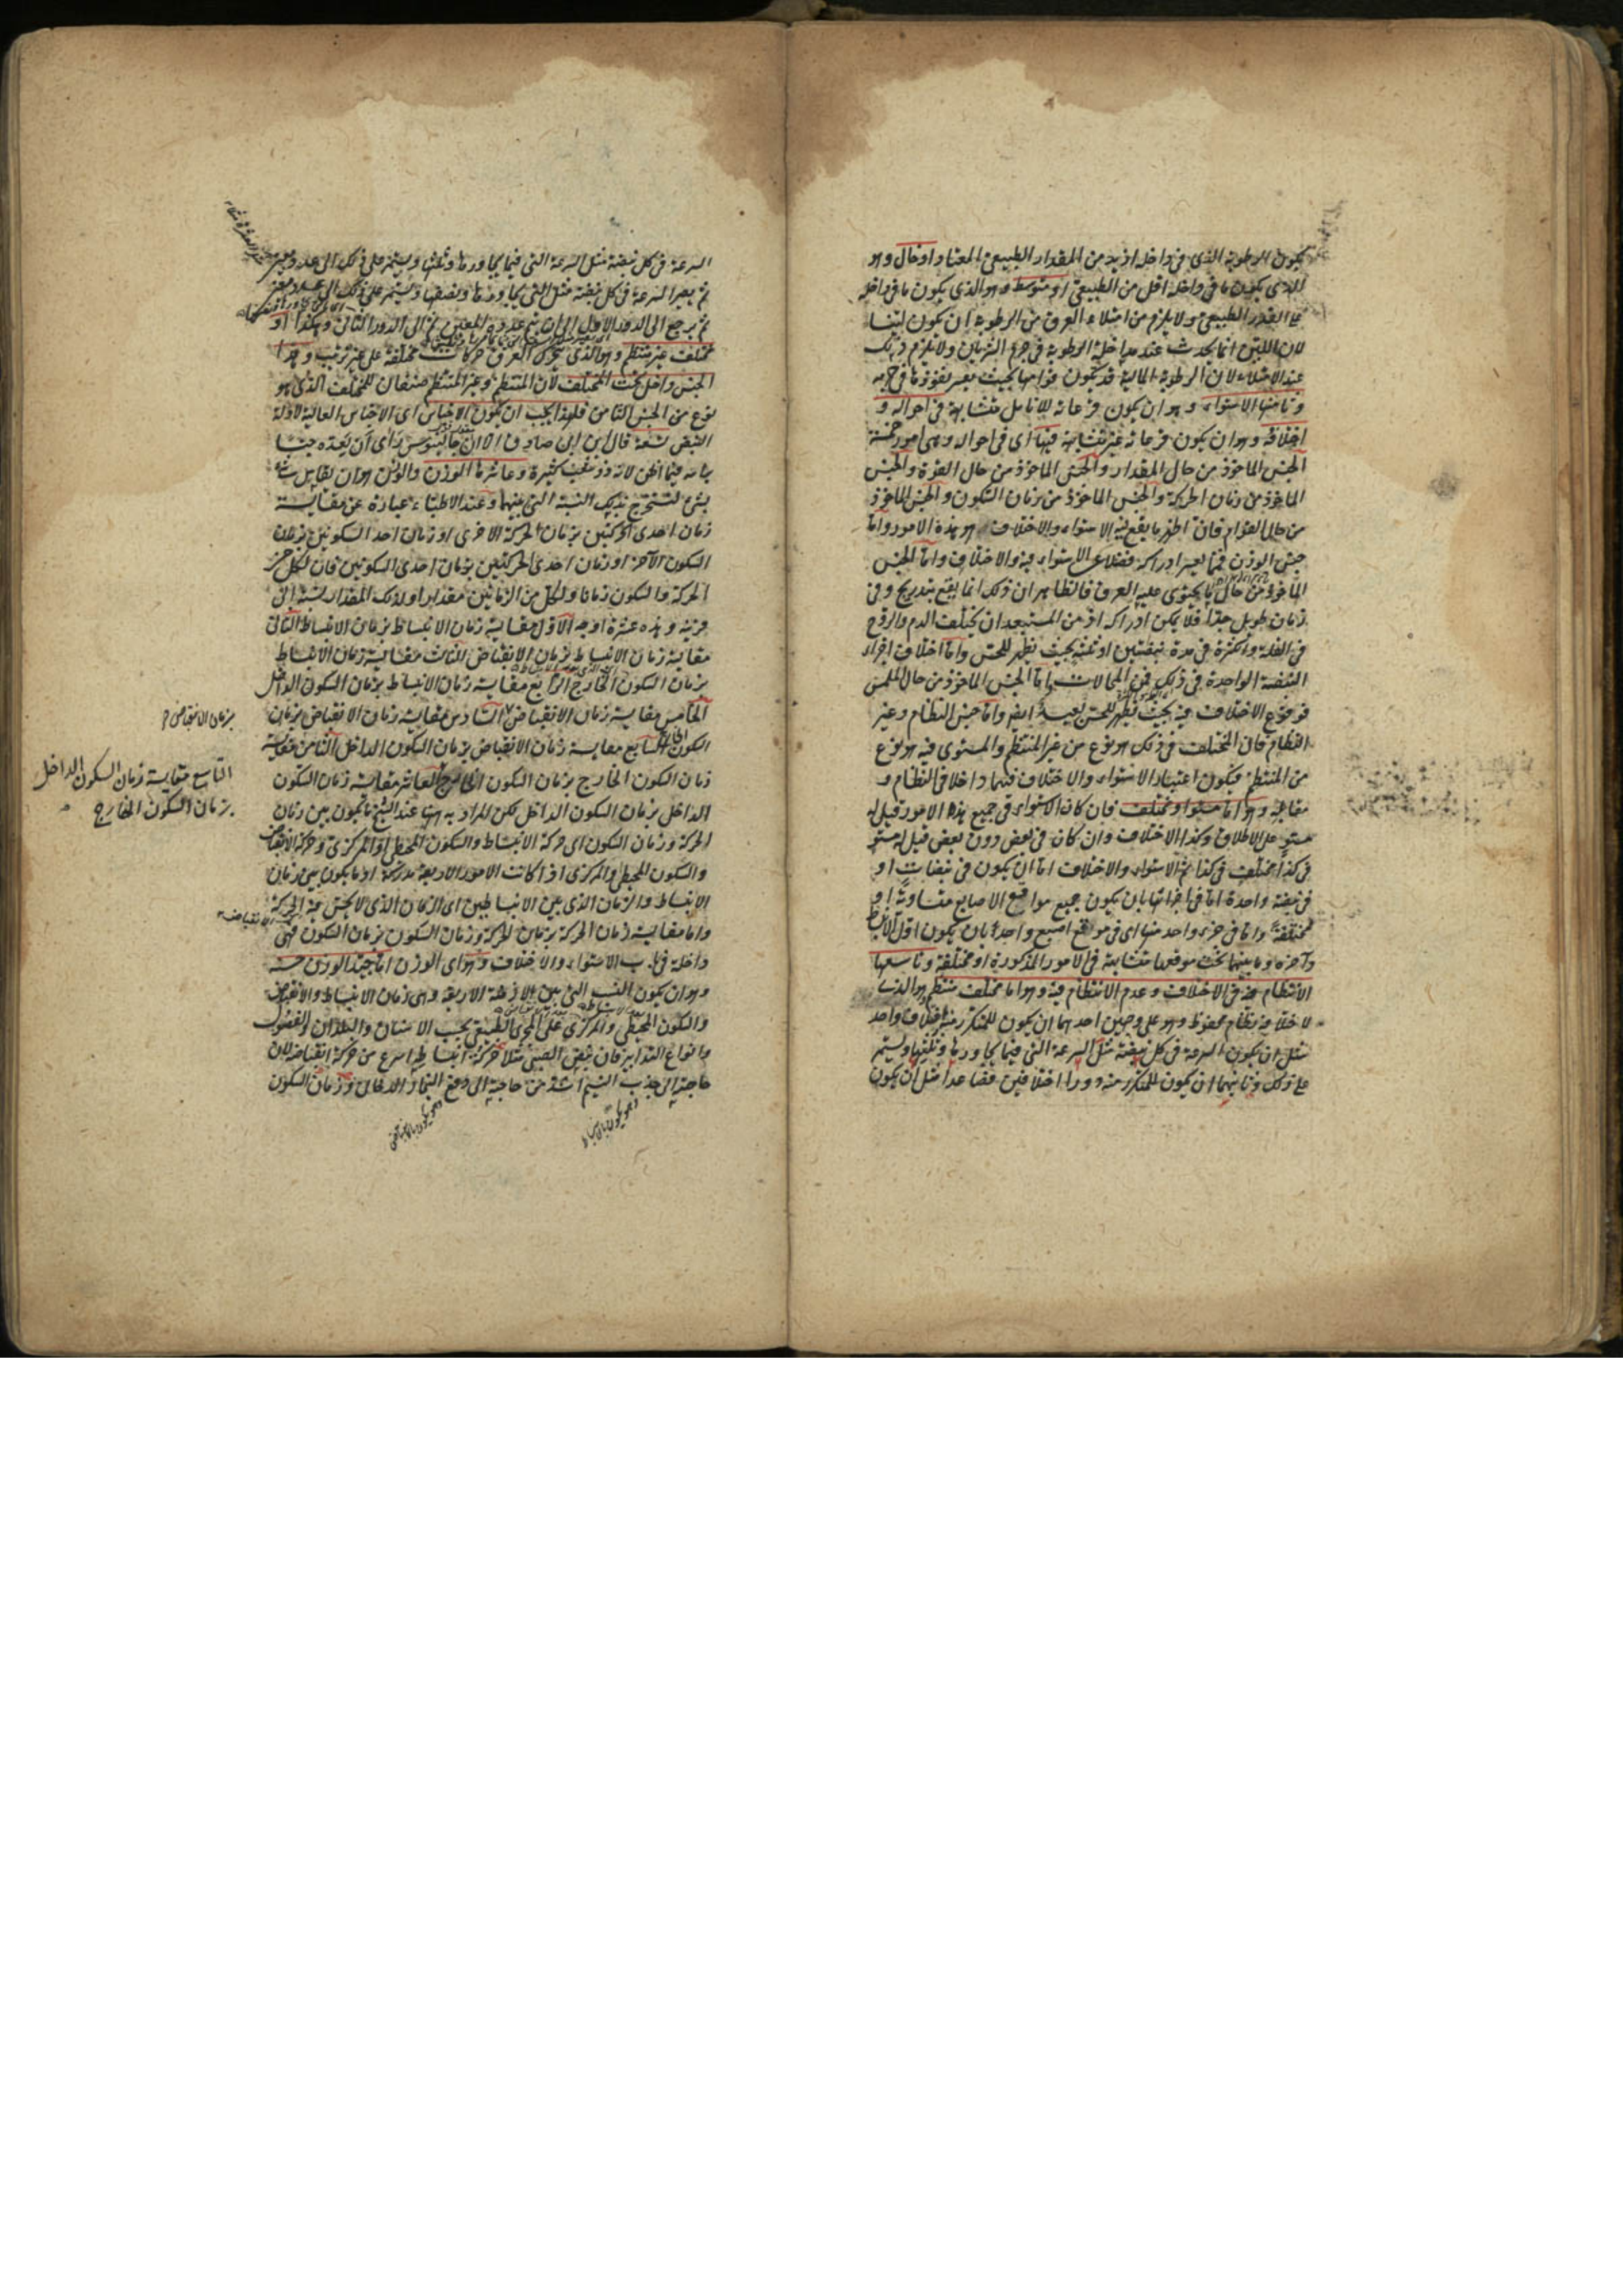 يكون الرطوبة الذى فى داخله ازيد من المقدار الطبيعى المعتاد او خال وهو
الذى يكون ما فى داخله اقل من الطبيعى او متوسط وهو الذى يكون ما فى داخله
على القدر الطبيعى ولا يلزم من امتلاء العرق من الرطوبة ان يكون لينا
لان اللين انما يحدث عند مداخلة الرطوبة فى جرم الشريان ولا يلزم ذلك
عند الامتلاء لان الرطوبة المالية قد يكون قوامها بحيث يعسر نفوذها فى جرمه
وثامنها الاستواء وهو ان يكون قرعاته للانامل متشابهة فى احواله و
اختلافه وهو ان يكون قرعاته غير متشابهة فيها اى فى احواله وهى امور خمسة
الجنس الماخوذ من حال المقدار والجنس الماخوذ من حال القوة والجنس
الماخوذ من زمان الحركة والجنس الماخوذ من زمان السكون والجنس الماخوذ
من حال القوام فان اظهر ما يقع فيه الاستواء والاختلاف هو هذه الامور واما
جنس الوزن فمما يعسر ادراكه فضلا عن الاستواء فيه والاختلاف واما الجنس
الماخوذ من حال ما يحتوى عليه العرق فالظاهر ان ذلك انما يقع بتدريج وفى
زمان طويل جدا فلا يمكن ادراكه اذ من المستبعد ان يختلف الدم والروح
فى القلة والكثرة فى مدة نبضتين او ثلثة بحيث يظهر للحس واما اختلاف اجزاء
النبضة الواحدة فى ذلك فمن المحالات واما الجنس الماخوذ من حال الملمس
فوقوع الاختلاف فيه بحيث يظهر للحس بعيد ايضا واما جنس النظام وغير
النظام فان المختلف فى ذلك هو نوع من غير المنتظم والمستوى فيه هو نوع
من المنتظم فيكون اعتبار الاستواء والاختلاف فيهما داخلا فى النظام و
مقابله وهو اما مستو او مختلف فان كان الاستواء فى جميع هذه الامور قيل له
مستو على الاطلاق وكذا الاختلاف وان كان فى بعض دون بعض قيل له مستو
فى كذا مختلف فى كذا ثم الاستواء والاختلاف اما ان يكون فى نبضات او
فى نبضة واحدة اما فى اجزائها بان يكون جميع مواقع الاصابع متساوية او
مختلفة واما فى جزء واحد منها اى فى موقع اصبع واحدة بان يكون اول الانبساط
وآخره وما بينهما تحت موقعها متشابهة فى الامور المذكورة او مختلفة وتاسعها
الانتظام منه فى الاختلاف وعدم الانتظام فيه وهو اما مختلف منتظم وهو الذى
لاختلافه نظام محفوظ وهو على وجهين احدهما ان يكون للمتكرر منه اختلاف واحد
مثل ان يكون السرعة فى كل نبضة مثل السرعة التى فيما يجاورها وثلثيها ويستمر
على ذلك وثانيهما ان يكون للمتكرر منه دورا اختلافين فصاعدا مثل ان يكون
السرعة فى كل نبضة مثل السرعة التى فيما يجاورها وثلثيها ويستمر على ذلك الى عدد معين
ثم يصير السرعة فى كل نبضة مثل التى يجاورها ونصفها ويستمر على ذلك الى عدد معين
ثم يرجع الى الدور الاول الى ان يتم عدده المعين ثم الى الدور الثانى وهكذا او
مختلف غير منتظم وهو الذى يتحرك العرق حركات مختلفة على غير ترتيب وهذا
الجنس داخل تحت المختلف لان المنتظم وغير المنتظم صنفان للمختلف الذى هو
نوع من الجنس الثامن فلهذا يجب ان يكون الاجناس اى الاجناس العالية لادلة
النبض تسعة قال ابن ابى صادق الا ان جالينوس راى ان يعده جنسا
براسه فيما اظن لانه ذو شعب كثيرة وعاشرها الوزن والوزن هو ان يقابل شىء
بشىء لتستخرج بذلك النسبة التى بينهما وعند الاطباء عبارة عن مقايسة
زمان احدى الحركتين بزمان الحركة الاخرى او زمان احد السكونين بزمان
السكون الآخر او زمان احدى الحركتين بزمان احدى السكونين فان لكل من
الحركة والسكون زمانا ولكل من الزمانين مقدارا ولذلك المقدار نسبة الى
قرينه وهذه عشرة اوجه الاول مقايسة زمان الانبساط بزمان الانبساط الثانى
مقايسة زمان الانبساط بزمان الانقباض الثالث مقايسة زمان الانبساط
بزمان السكون الخارج الرابع مقايسة زمان الانبساط بزمان السكون الداخل
الخامس مقايسة زمان الانقباض السادس مقايسة زمان الانقباض بزمان
بزمان الانقباض
السكون الخارج السابع مقايسة زمان الانقباض بزمان السكون الداخل الثامن مقايسة
زمان السكون الخارج بزمان السكون الخارج العاشر مقايسة زمان السكون
التاسع مقايسة زمان السكون الداخل
بزمان السكون الخارج
الداخل بزمان السكون الداخل لكن المراد به ههنا عند الشيخ ما يكون بين زمان
الحركة وزمان السكون اى حركة الانبساط والسكون المحيطى او المركزى وحركة الانقباض
والسكون المحيطى والمركزى اذا كانت الامور الاربعة مدركة او ما يكون بين زمان
الانبساط والزمان الذى بين الانبساطين اى الزمان الذى لا يحس فيه الحركة
واما مقايسة زمان الحركة بزمان الحركة وزمان السكون بزمان السكون فهى
داخلة فى باب الاستواء والاختلاف وهو اى الوزن اما جيد الوزن حسنه
وهو ان يكون النسب التى بين الازمنة الاربعة وهى زمان الانبساط والانقباض
والسكون المحيطى والمركزى على المجرى الطبيعى بحسب الاسنان والبلدان والفصول
وانواع التدابير فان نبض الصبى مثلا حركة انبساطه اسرع من حركة انقباضه لان
حاجته الى جذب النسيم اشد من حاجته الى دفع البخار الدخانى وزمان السكون